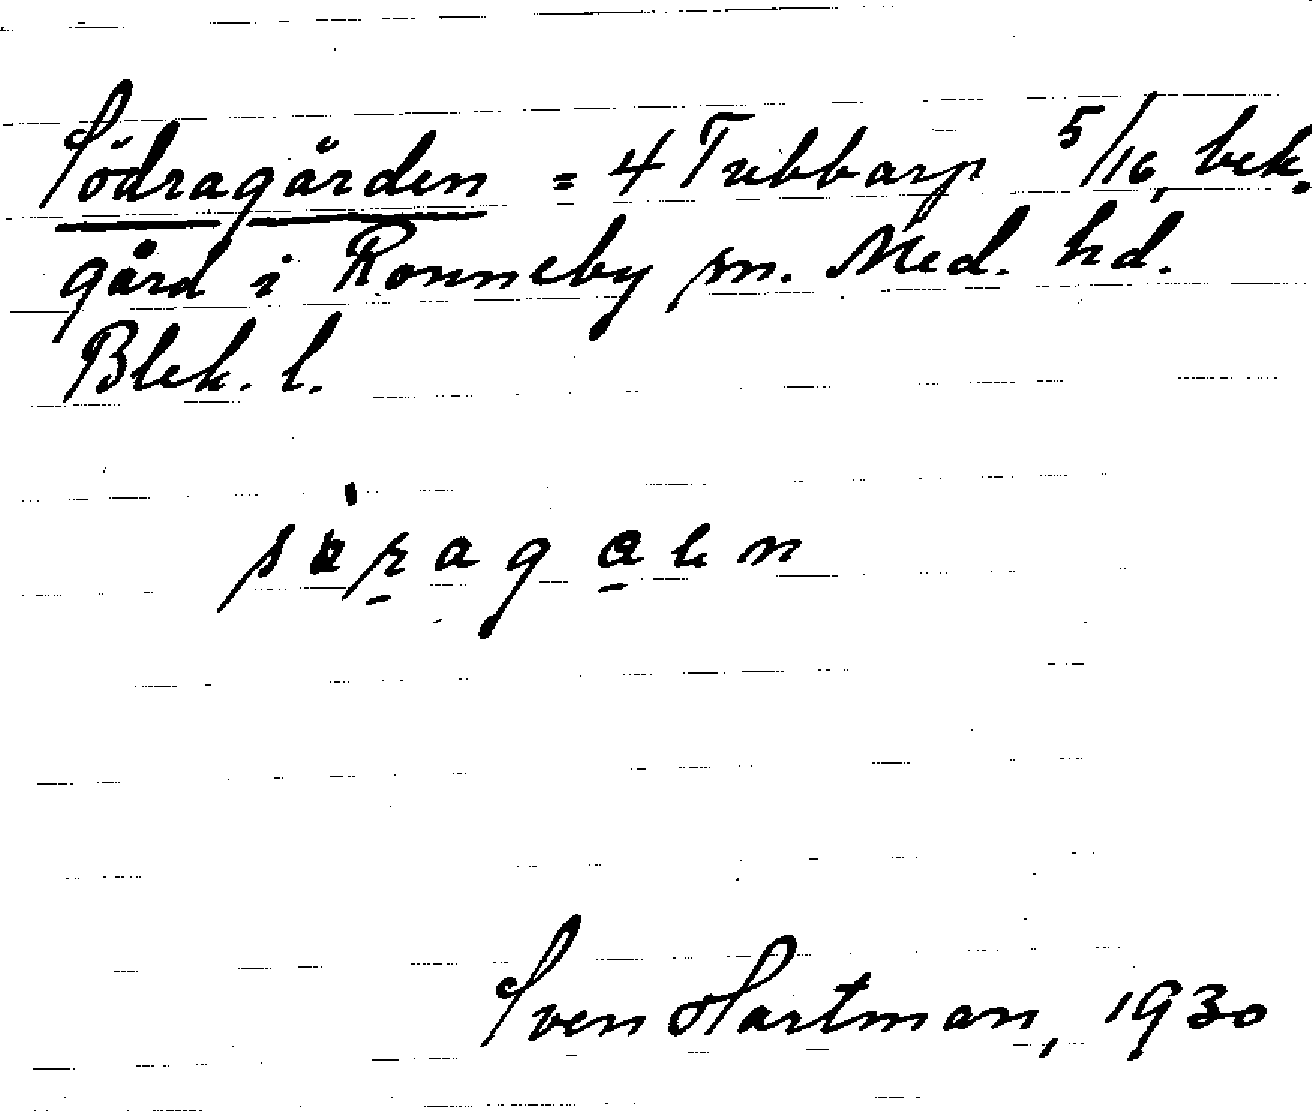 Södragården = 4 Tubbarp 5/16, bek.
gård i Ronneby sn. Med. hd.
Blek. l.
Sven Hartman, 1930